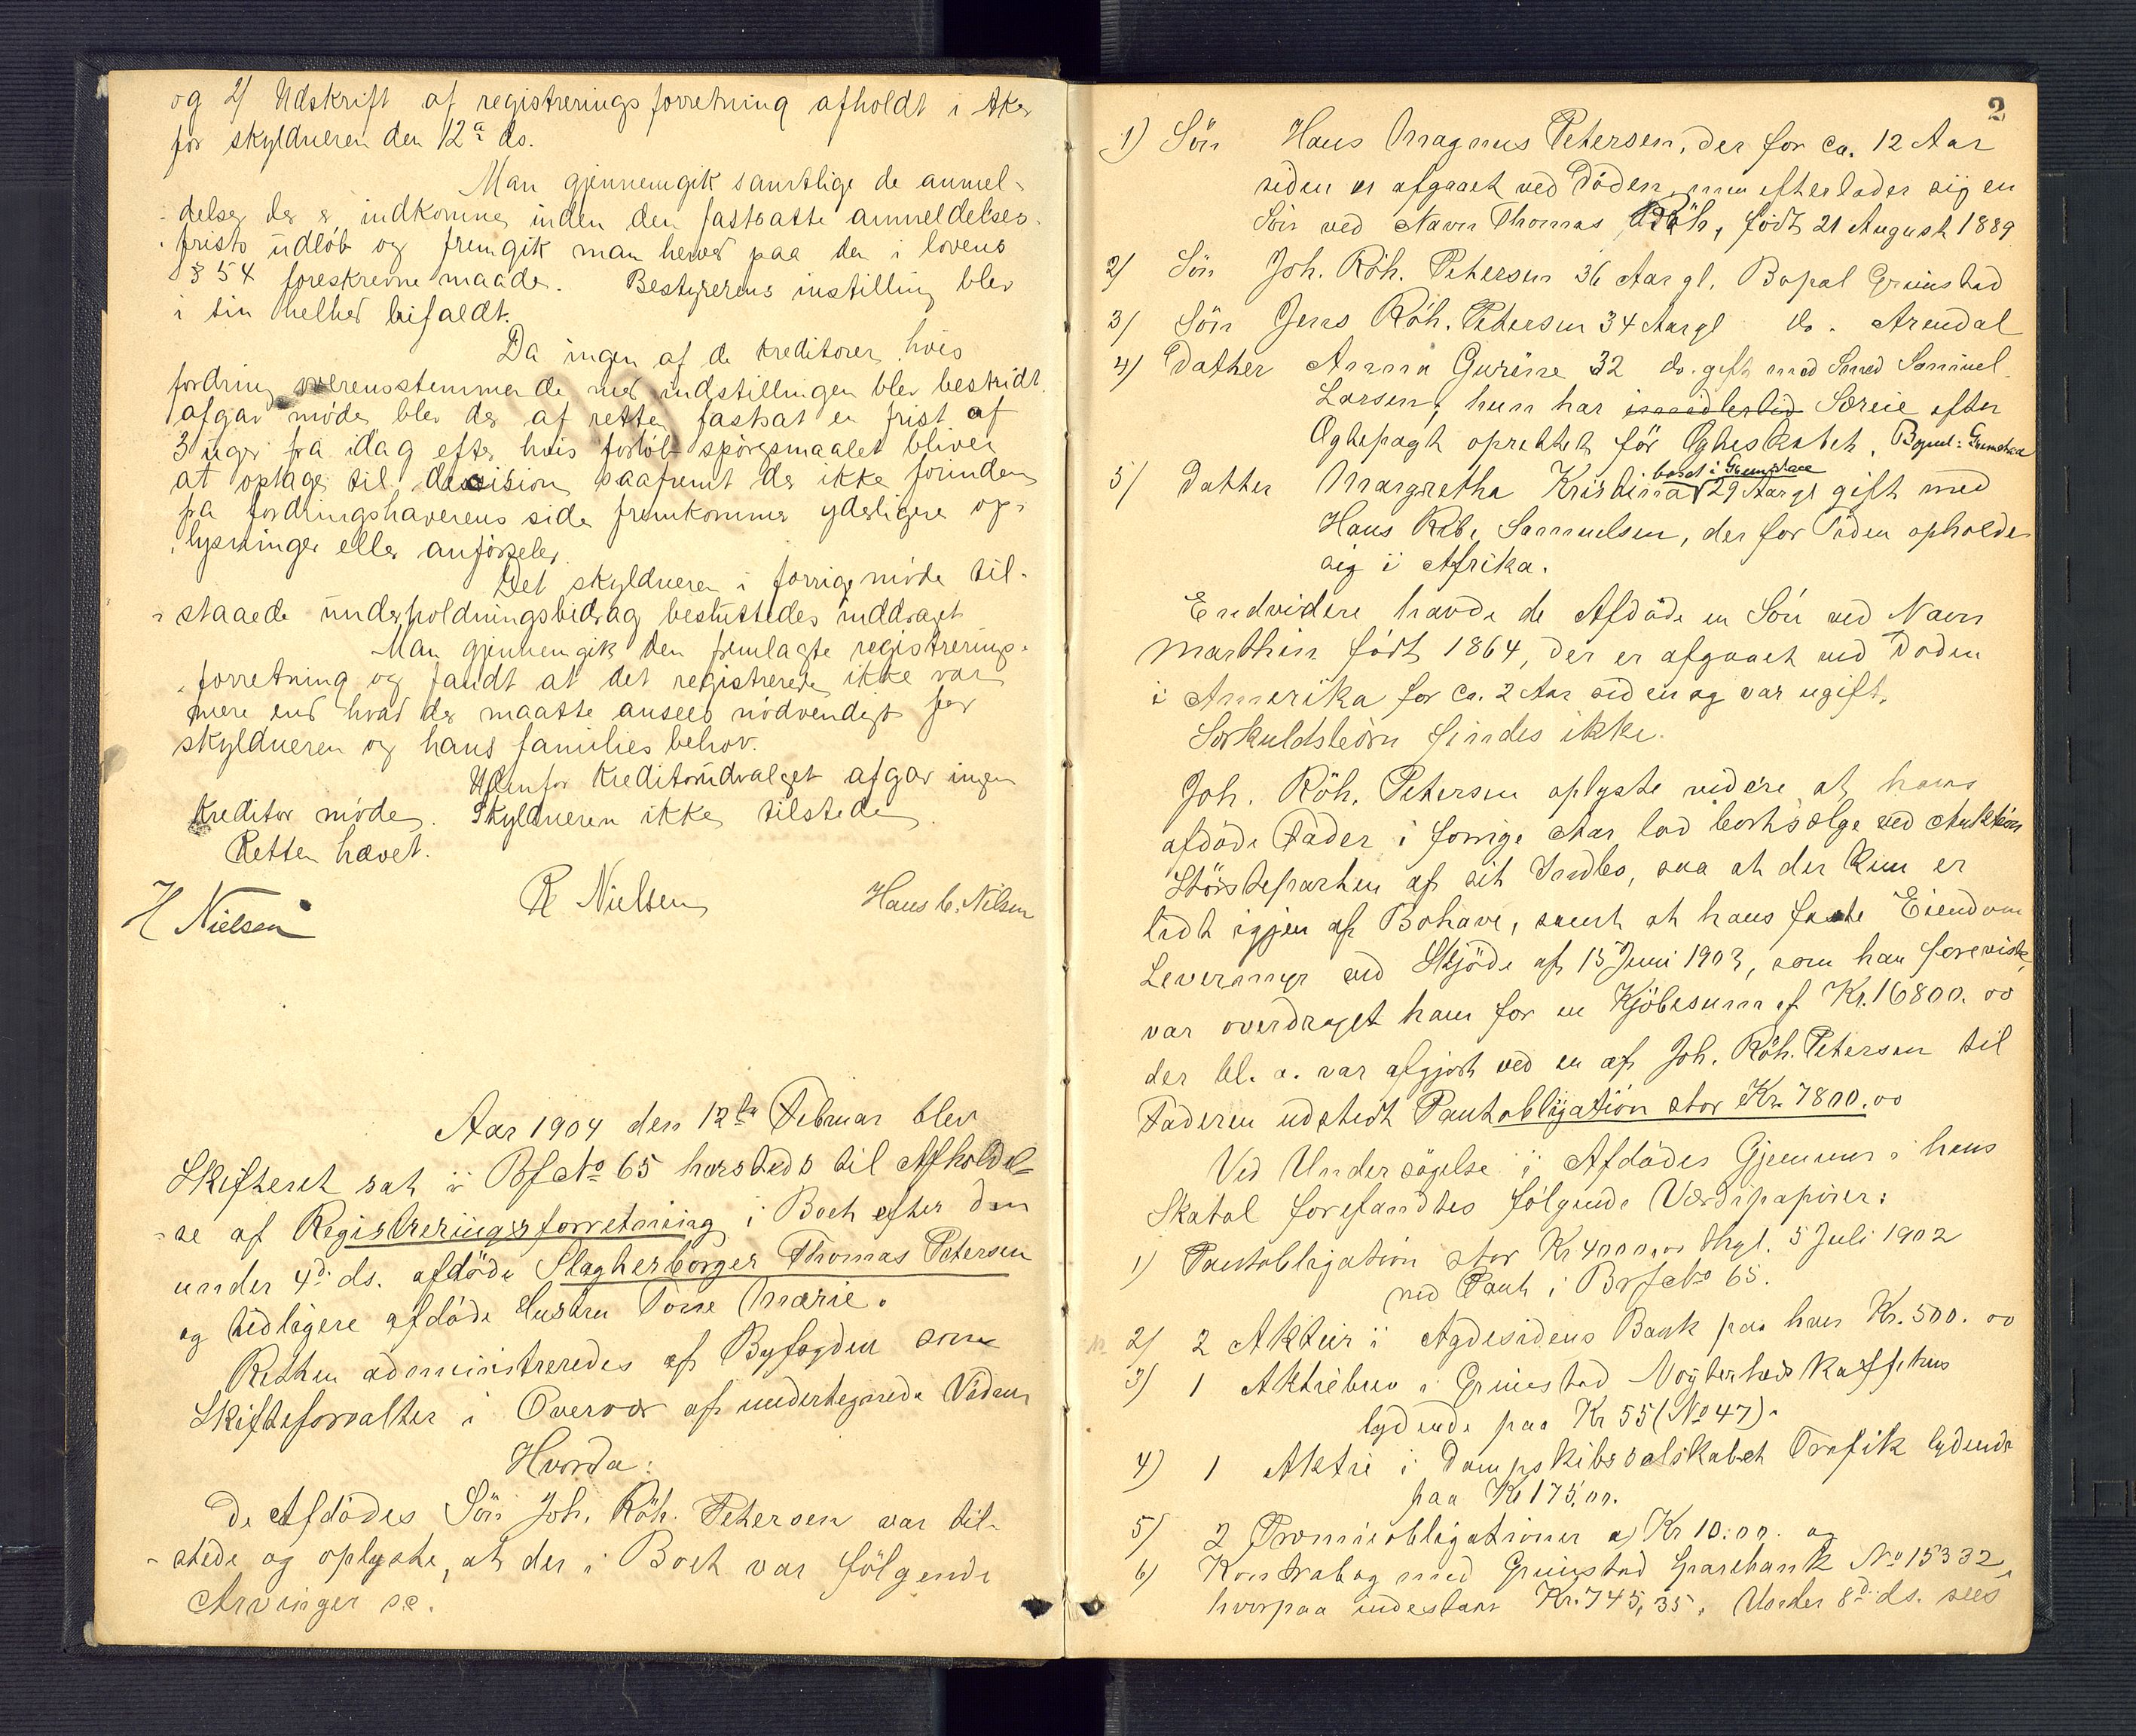 og 2/ Udskrift af registreringsforretning afholdt i
for skyldneren den 12te ds.
Man gjennemgik samtlige de anmel-
delser der er indkomne inden den fastsatte anmeldelses-
frists udløb og fremgik man herved paa den i lovens
§ 54 foreskrevne maade. Bestyrerens instilling blev
i sin helhed bifaldt.
Da ingen af de kreditorer, hvis
fordring overensstemmende med indstillingen blev bestridt
afgav møde, blev der af retten fastsat en frist af
3 uger fra idag efter hvis forløb spørgsmaalet bliver
at optage til decision saafremt der ikke forinden
fra fordringshaverens side fremkommer yderligere op-
lysninger eller anførseler.
Det skyldneren i forrige møde til-
staaede underholdningsbidrag besluttedes inddraget
Man gjennemgik den fremlagte registrerings-
forretning og fandt at det registrerede ikke var
mere end hvad der maatte ansees nødvendigt for
skyldneren og hans families behov.
Udenfor kreditorudvalget afgav ingen
kreditor møde. Skyldneren ikke tilstede.
Retten hævet.
H Nielsen R Nielsen Hans C. Nilsen
Aar 1904 den 12te Februar blev
Skifteret sat i Bf No 65 hersteds til Afholdel-
se af Registreringsforretning i Boet efter den
under 4d. ds. afdöde Slagterborger Thomas Petersen
og tidligere afdöde Hustru Tone Marie.
Retten administreredes af Byfogden som
Skifteforvalter i Overvær af undertegnede Vidner
Hvorda:
De Afdödes Sön Joh. Röh. Petersen var til-
stede og oplyste, at der i Boet var fölgende
Arvinger s.e.
2
1) Sön Hans Magnus Petersen, der for ca. 12 Aar
siden er afgaaet ved Döden, men efterlader sig en
Sön ved Navn Thomas Röh, födt 21 August 1889
2) Sön Joh. Röh. Petersen 36 Aar gl. Bopæl Grimstad
3) Sön Jens Röh. Petersen 34 Aar gl do. Arendal
4) Datter Anna Gurine 32 do. gift med Smed Samuel
Larsen, hun har imidlertid Særeie efter
Ægtepagt oprettet för Ægteskabet. Bopæl: Grimstad
bosat i Grimstad
5) Datter Margretha Kristina 29 Aar gl gift med
Hans Samuelsen, der for Tiden opholder
sig i Afrika.
Endvidere havde de Afdöde en Sön ved Navn
Marthin födt 1864, der er afgaaet ved Döden
i Amerika for ca. 2 Aar siden og var ugift.
Forkuldsbörn findes ikke.
Joh. Röh. Petersen oplyste videre at hans
afdöde Fader i forrige Aar lod bortsælge ved Auktion
Störsteparten af sit Indbo, saa at der kun er
lidt igjen af Bohave, samt at hans faste Eiendom
Levermyr ved Skjöde af 15 Juni 1903, som han foreviste,
var overdraget ham for en Kjöbesum af Kr. 16800.00
der bl. a. var afgjort ved en af Joh. Röh. Petersen til
Faderen udstedt Pantobligation stor Kr. 7800.00
Ved Undersögelse i Afdödes Gjemmer i hans
Skatol forefandtes fölgende Værdipapirer:
1) Pantobligation stor Kr 4000,00 thgl. 5 Juli 1902
med Pant i Bf No 65.
2) 2 Aktier i Agdesidens Bank paa hver Kr. 500.00
3) 1 Aktiebrev i Grimstad Nögterheds Kaffehus
lydende paa Kr 55 (No 47).
4) 1 Aktie i Dampskibsselskabet Trafik lydende
paa Kr 175,00.
5) 2 Præmieobligationer a) Kr 10.00. og
6) Kontrabog med Grimstad Sparebank No 15332,
hvorpaa indestaar Kr. 745,35. Under 8d ds. sees